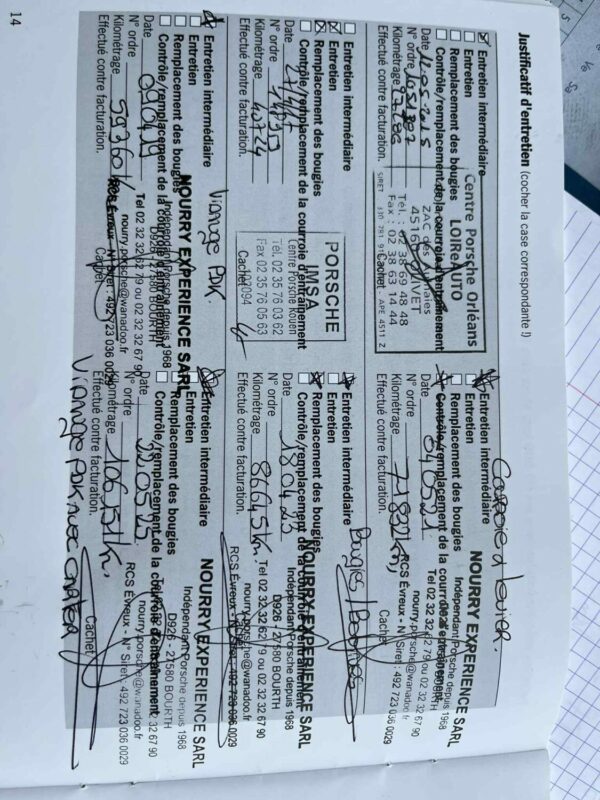 Justificatif d'entretien (cocher la case correspondante !)
Entretien intermédiaire
Entretien
Remplacement des bougies
Contrôle/remplacement de la courroie d'entraînement
Date
N° ordre
Kilométrage
Effectué contre facturation.
Centre Porsche Orléans
LOIReAUTO
45160 OLIVET
Tél. : 02 38 69 48 48
Fax : 02 38 63 14 44
Cachet
APE 4511 Z
Entretien intermédiaire
Entretien
Remplacement des bougies
Contrôle/remplacement de la courroie d'entraînement
Date
N° ordre
Kilométrage 40724
Effectué contre facturation.
PORSCHE
IMSA
Centre Porsche Rouen
Tél. 02 35 76 03 62
Fax 02 35 76 05 63
Cachet
Entretien intermédiaire
Entretien
Remplacement des bougies
Contrôle/remplacement de la courroie d'entraînement
Date 090419
N° ordre
Kilométrage 59360 km
Effectué contre facturation.
Vidange PDK
NOURRY EXPERIENCE SARL
Indépendant Porsche depuis 1968
D926 - 27580 BOURTH
Tel 02 32 32 62 79 ou 02 32 32 67 90
nourry.porsche@wanadoo.fr
RCS Evreux - N° Siret : 492 723 036 0029
Cachet
Entretien intermédiaire
Entretien
Remplacement des bougies
Contrôle/remplacement de la courroie d'entraînement
Date 040521
N° ordre
Kilométrage
Effectué contre facturation.
NOURRY EXPERIENCE SARL
Indépendant Porsche depuis 1968
D926 - 27580 BOURTH
Tel 02 32 32 62 79 ou 02 32 32 67 90
nourry.porsche@wanadoo.fr
RCS Evreux - N° Siret : 492 723 036 0029
Cachet
Entretien intermédiaire
Entretien
Remplacement des bougies
Contrôle/remplacement de la courroie d'entraînement
Date 180423
N° ordre
Kilométrage 86645 km
Effectué contre facturation.
Bougies
NOURRY EXPERIENCE SARL
Indépendant Porsche depuis 1968
D926 - 27580 BOURTH
Tel 02 32 32 62 79 ou 02 32 32 67 90
nourry.porsche@wanadoo.fr
RCS Evreux - N° Siret : 492 723 036 0029
Entretien intermédiaire
Entretien
Remplacement des bougies
Contrôle/remplacement de la courroie d'entraînement
Date
N° ordre
Kilométrage 106151 km
Effectué contre facturation.
Vidange PDK
NOURRY EXPERIENCE SARL
Indépendant Porsche depuis 1968
D926 - 27580 BOURTH
nourry.porsche@wanadoo.fr
RCS Evreux - N° Siret : 492 723 036 0029
Cachet
14